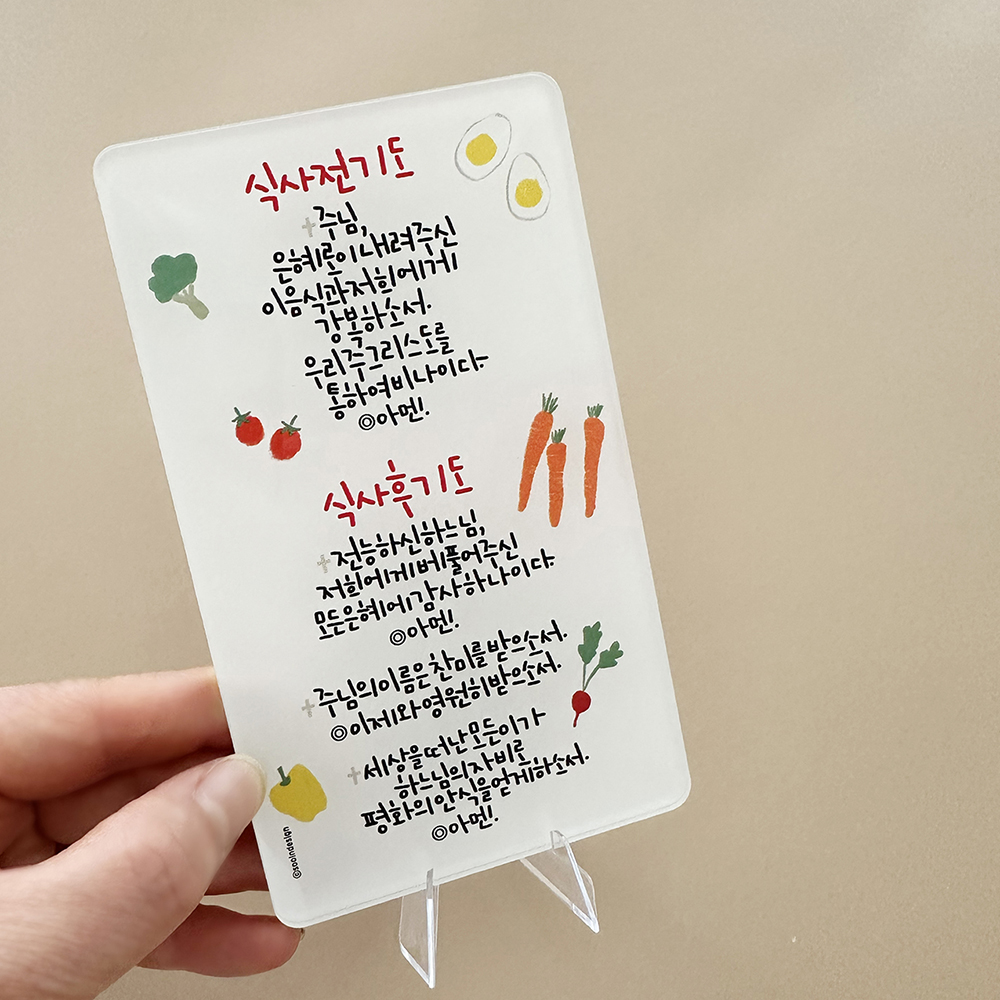 식사전기도
+주님,
은혜로이 내려주신
이 음식과 저희에게
강복하소서.
우리 주 그리스도를
통하여 비나이다.
◎아멘!.
식사후기도
+전능하신 하느님,
저희에게 베풀어주신
모든 은혜에 감사하나이다.
◎아멘!.
+주님의 이름은 찬미를 받으소서.
◎이제와 영원히 받으소서.
+세상을 떠난 모든 이가
하느님의 자비로
평화의 안식을 얻게 하소서.
◎아멘!.
@sooindesign